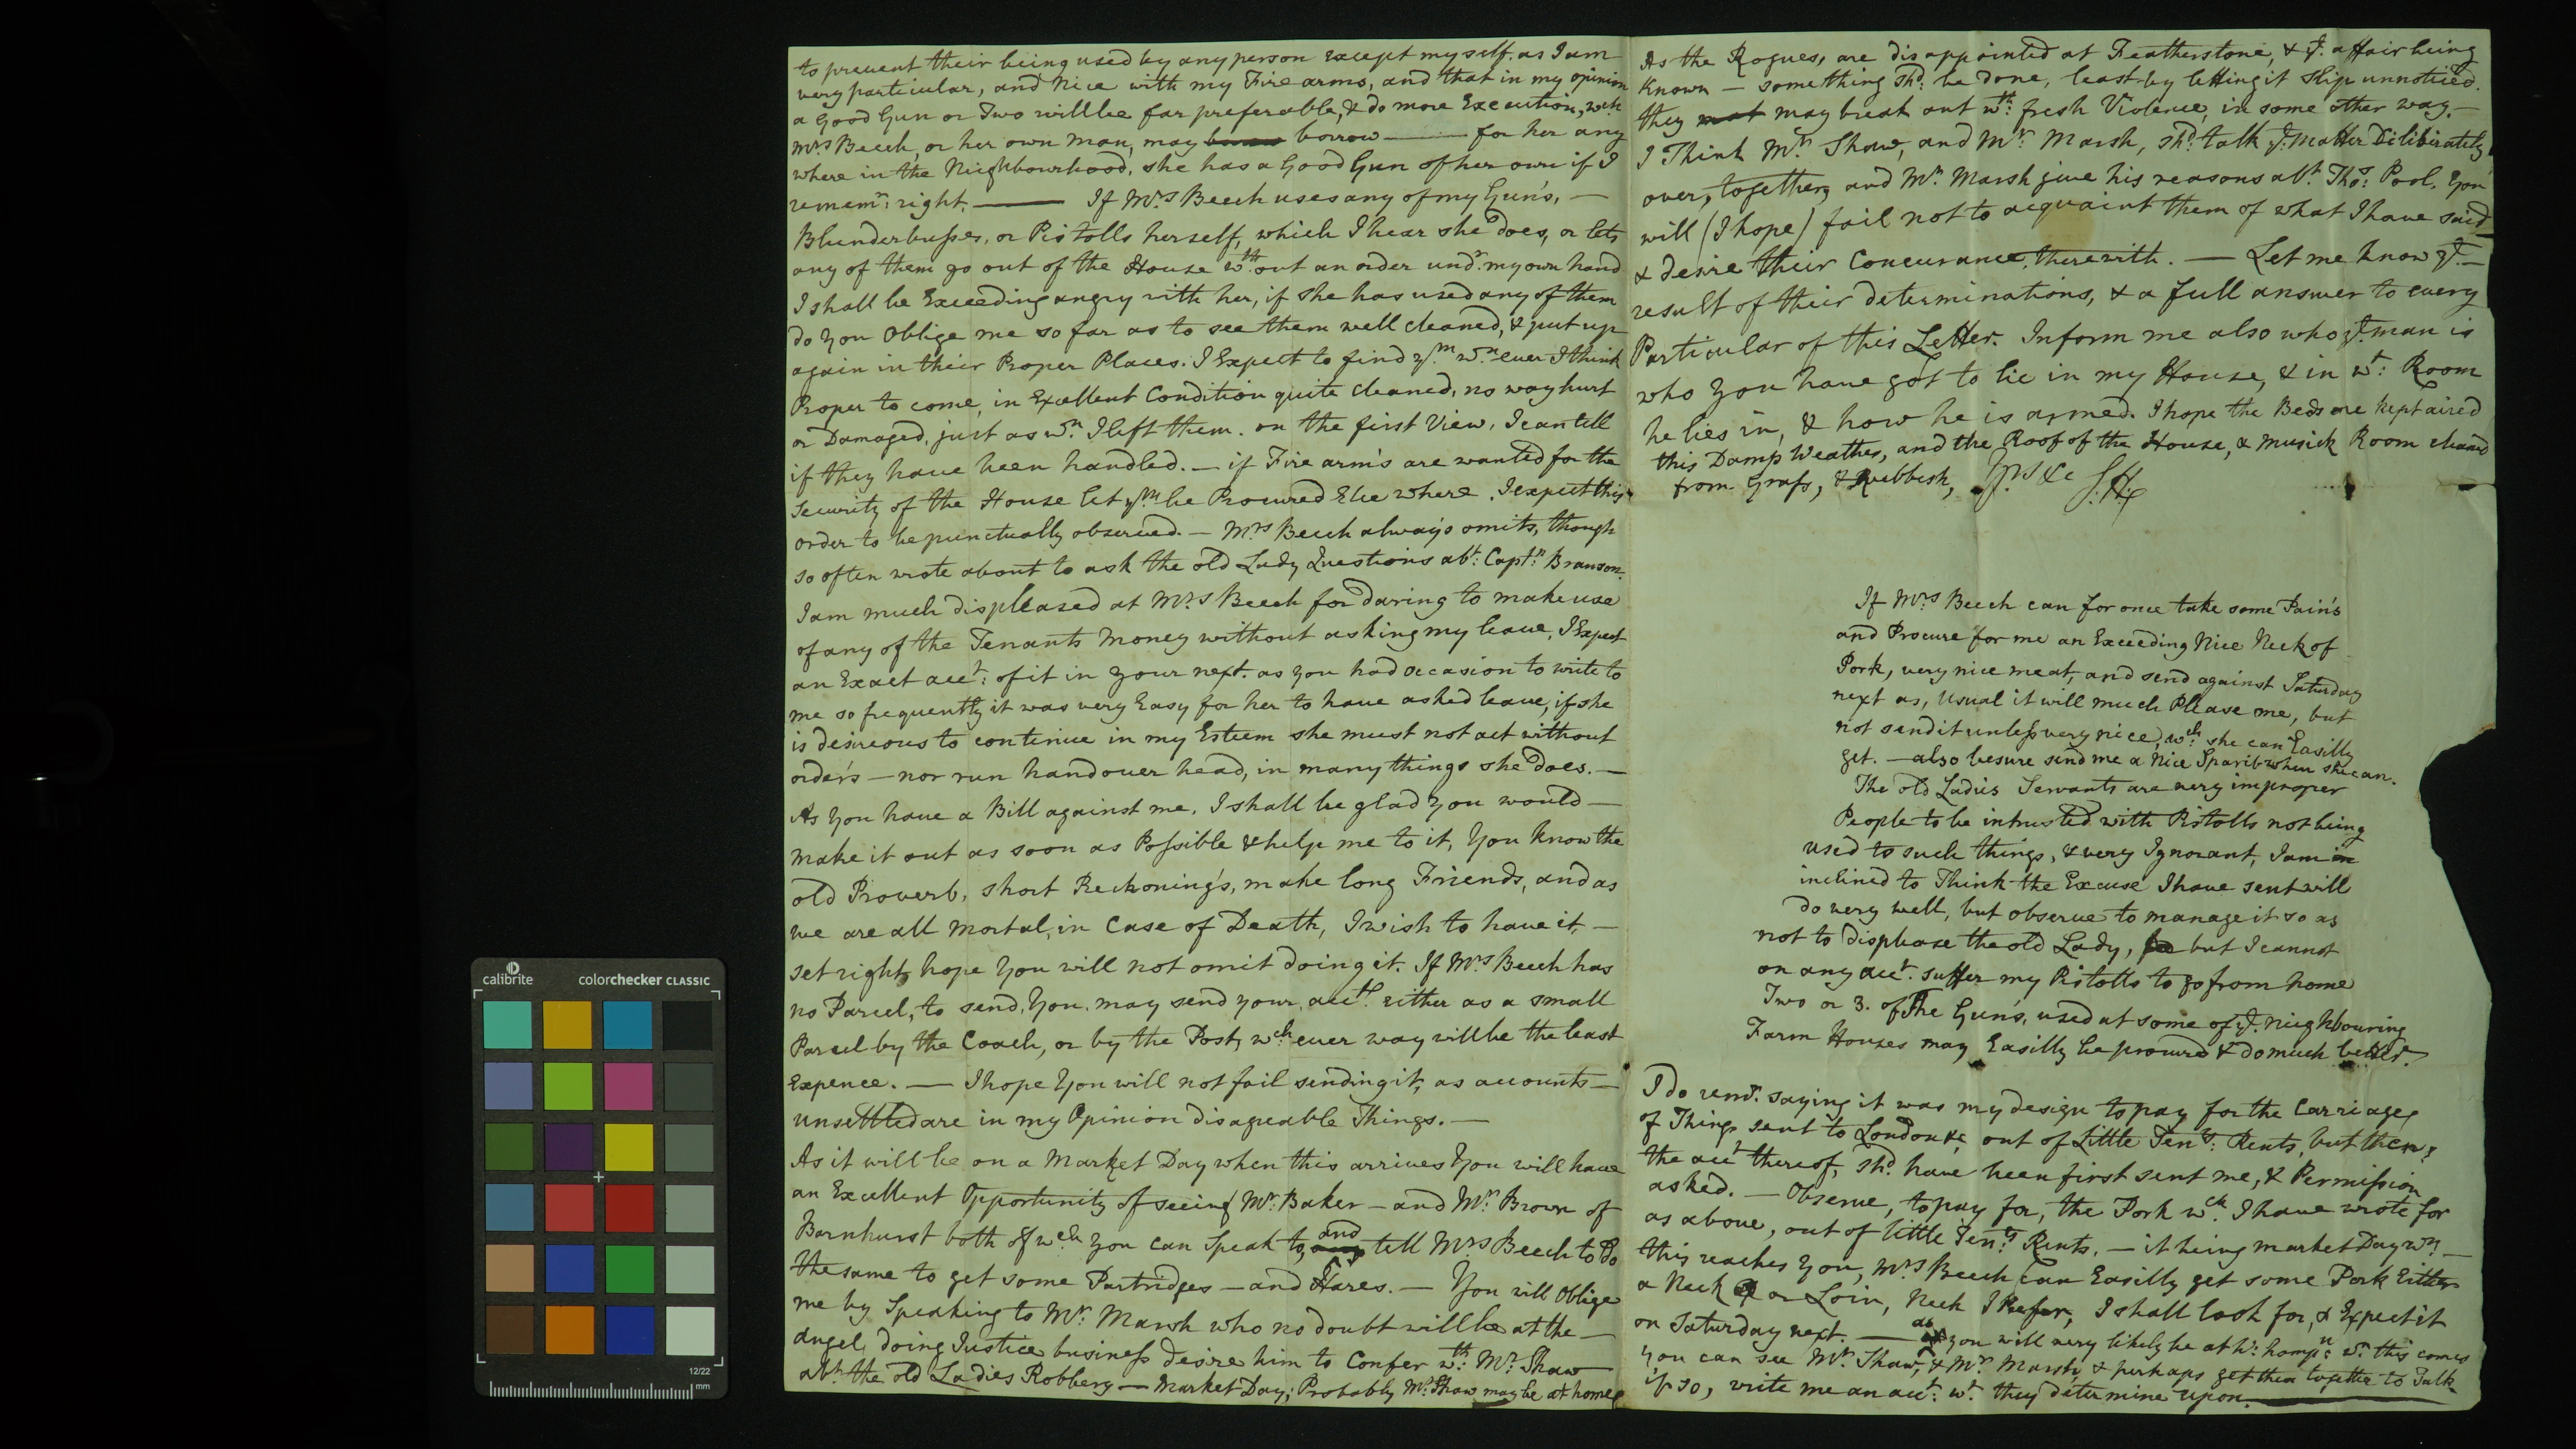 to prevent their being used by any person except myself. as I am
very particular, and Nice with my Fire arms, and that in my opinion
a Good Gun or Two will be far preferable, & do more Execution, wch
Mrs Beech, or her own man, may borrow —— for her any
where in the Neighbourhood, she has a Good Gun of her own if I
rememr: right. —— If Mrs Beech uses any of my Gun's, —
Blunderbusses, or Pistolls herself, which I hear she does, or lets
any of them go out of the House wth:out an order undr. my own hand
I shall be Exceeding angry with her, if she has used any of them
do you Oblige me so far as to see them well cleaned, & put up
again in their Proper Places. I Expect to find ym wn ever I think
Proper to come, in Excellent Condition quite cleaned, no way hurt
or Damaged, just as wn I left them. on the first View, I can tell
if they have been handled. — if Fire arm's are wanted for the
Security of the House let ym be Procured Else where, I expect this
order to be punctually observed. — Mrs Beech always omits, though
so often wrote about to ask the old Lady Questions abt: Captn: Branson.
I am much displeased at Mrs Beech for daring to make use
of any of the Tenants Money without asking my leave, I Expect
an Exact acct: of it in your next. as you had occasion to write to
me so frequently it was very Easy for her to have asked leave, if she
is desireous to continue in my Esteem she must not act without
order's — nor run hand over head, in many things she does. —
As you have a Bill against me, I shall be glad you would —
make it out as soon as Possible & help me to it, You know the
old Proverb, short Reckoning's, make long Friends, and as
we are all mortal, in Case of Death, I wish to have it —
set right, hope you will not omit doing it. If Mrs Beech has
no Parcel, to send, You may send your acct. either as a small
Parcel by the Coach, or by the Post, wch ever way will be the least
Expence. — I hope You will not fail sending it, as accounts —
unsettled are in my Opinion disagreable Things. —
As it will be on a Market Day when this arrives You will have
an Excellent Opportunity of seeing Mr. Baker — and Mr. Brown of
Barnhurst both of wch you can speak to, and tell Mrs Beech to do
the same to get some Partridges — and Hares. — You will oblige
me by Speaking to Mr. Marsh who no doubt will be at the —
Angel, doing Justice business desire him to Confer wth: Mr. Shaw
abt. the old Ladies Robbery — Market Day; Probably Mr. Shaw may be at home
As the Rogues, are disappointed at Featherstone, & ye. affair being
Known — something shd: be done, least by letting it slip unnoticed.
they may break out wth: fresh Violence, in some other way. —
I Think Mr. Shaw, and Mr. Marsh, shd. talk ye. Matter Deliberately
over, together, and Mr. Marsh give his reasons abt. Thos: Pool. You
will (I hope) fail not to acquaint them of what I have said
& desire their Concurance, therewith. — Let me know ye. —
result of their determinations, & a full answer to every
Particular of this Letter. Inform me also who ye. man is
who you have got to lie in my House, & in wt: Room
he lies in, & how he is armed. I hope the Beds are kept aired
this Damp Weather, and the Roof of the House, & Musick Room cleaned
from Grass, & Rubbish, Yrs &c J.H
If Mrs Beech can for once take some Pain's
and Procure for me an Exceeding Nice Neck of
Pork, very nice meat, and send against Saturday
next as, Usual it will much Please me, but
not send it unless very nice, wch: she can Easilly
get. — also besure send me a Nice Sparib when she can.
The old Ladies Servants are very improper
People to be intrusted with Pistolls not being
used to such things, & very Ignorant, I am
inclined to Think the Excuse I have sent will
do very well, but observe to manage it so as
not to displease the old Lady, but I cannot
on any acct. suffer my Pistolls to go from home
Two or 3. of the Gun's, used at some of ye. Neighbouring
Farm Houses may Easilly be procured & do much better.
I do remr. saying it was my design to pay for the Carriage,
of Things sent to London &c, out of Little Tents: Rents, but then,
the acct thereof, shd. have been first sent me, & Permission
asked. — Observe, to pay for, the Pork wch. I have wrote for
as above, out of little Tents Rents, — it being market Day wn —
this reaches You, Mrs Beech can Easilly get some Pork Either
a Neck or Loin, Neck I Prefer, I shall look for, & Expect it
on Saturday next. — as you will very likely be at W:hampn: wn. this comes
you can see Mr. Shaw, & Mr. Marsh, & perhaps get them together to Talk
if so, write me an acct: wt. they determine upon. ——
calibrite
colorchecker CLASSIC
12/22
mm